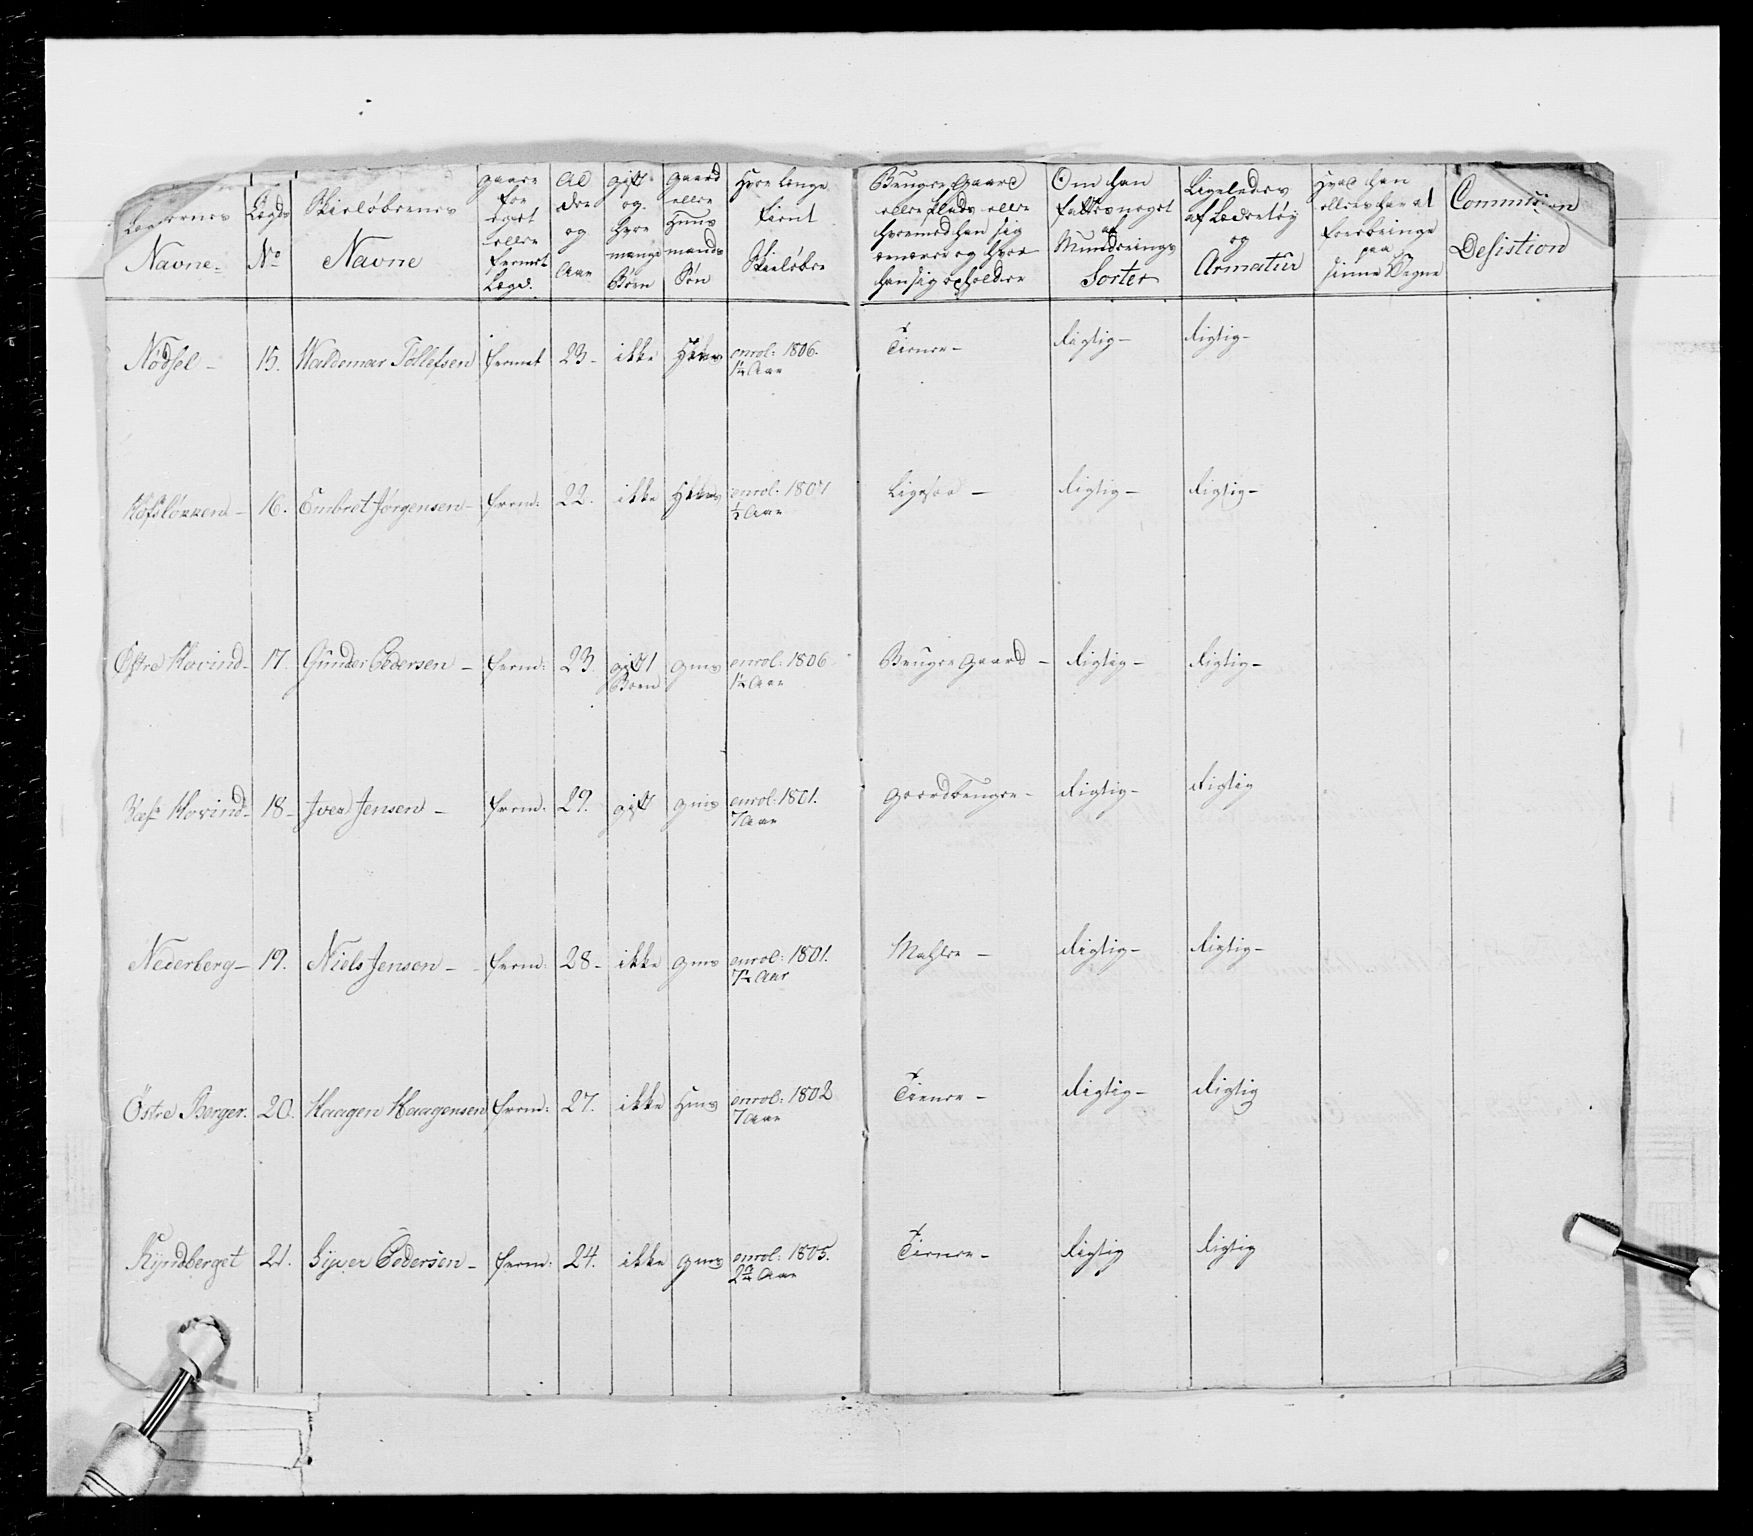 Navne
Legds No
Skieløbernes Navne
gaaer for eget eller fremet Lægd.
Al der og Aar
gift og hvor mange Børn
gaard eller Huus mands Søn
Hvor længe tient Skieløber
Bruger Gaard eller Plads eller hvormed han sig ernærer og hvor han sig opholder
Om han fattes noget af Munderings Sorter
Ligeledes af Lædertøj og Armatür
Hvad han ellers har at forebringe paa sinne Vegne
Commission Desistion
Nødsel – 15. Waldemar Tollefsen fremet 23 – ikke Hms enrol: 1806. 1½ Aar Tiener – Rigtig – Rigtig –
16. Embret Jørgensen – frem: 22. ikke Hms enrol: 1807 ½ Aar Ligesaa – Rigtig – Rigtig –
Østre Hovind – 17. Gunder Pedersen – frem: 23. gift 1 Børn gms enrol: 1806 1½ Aar Bruger Gaard – Rigtig – Rigtig –
Vest Hovind – 18 – Iver Jensen – frem: 29. gift gms enrol: 1801. 7 Aar Gaardbruger – Rigtig – Rigtig
Nederberg – 19. Niels Jensen – frem: 28 – ikke gms enrol: 1801. 7½ Aar Mahler – Rigtig – Rigtig –
Østre Berger. 20. Haagen Haagensen frem: 27. ikke Hms enrol: 1802 7 Aar Tiener – Rigtig – Rigtig
Kyndberget 21. Siver Pedersen – frem: 24. ikke gms enrol: 1805. Aar Tiener – Rigtig Rigtig